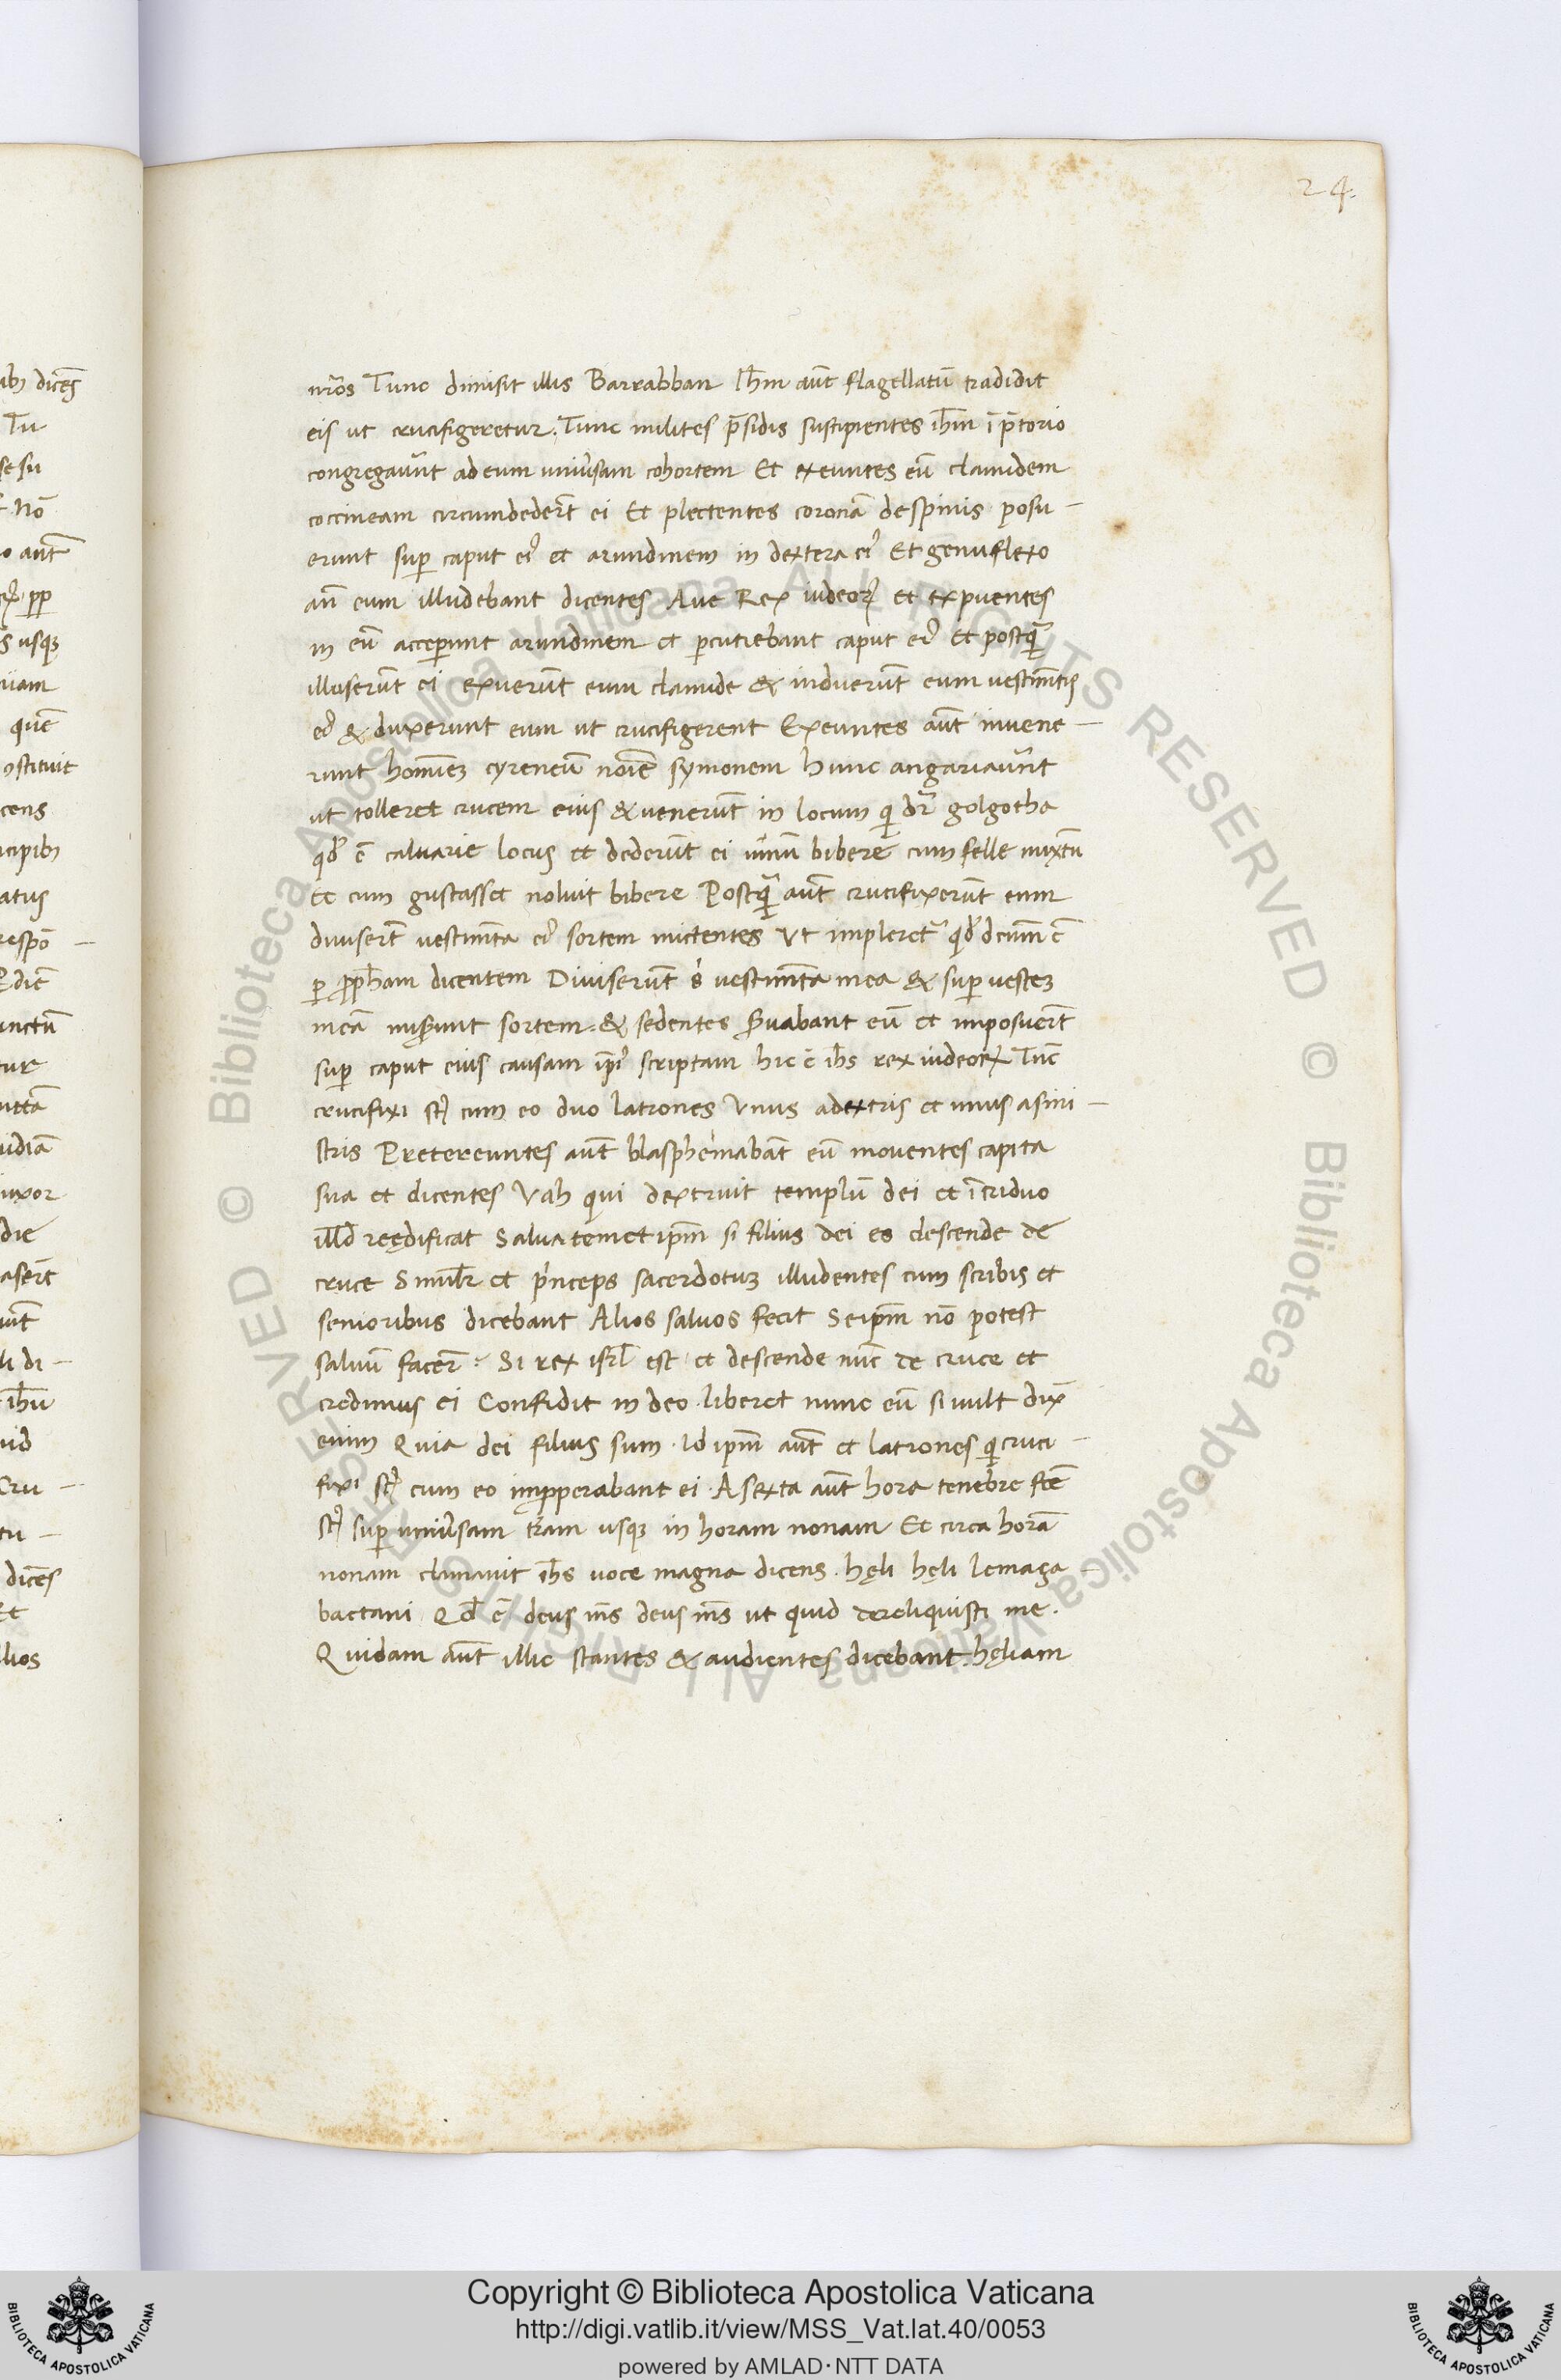 24.
nr̃os Tunc dimisit illis Barrabban Ih̃m aut̃ flagellatũ tradidit
eis ut crucifigeretur. Tunc milites p̃sidis suscipientes ih̃m ĩ p̃torio
congregaũnt ad eum uniũsam cohortem Et exeuntes eũ clamidem
coccineam circumdeder̃t ei Et plectentes coronã de spinis posu-
erunt sup̲ caput ei⁹ et arundinem in dextera ei⁹ Et genuflexo
añ eum illudebant dicentes Aue Rex iudeoꝝ et expuentes
in eũ accep̲unt arundinem et p̲cutiebant caput ei⁹ Et postq̃
illuserũt ei exuerũt eum clamide & induerũt eum uestim̃tis
ei⁹ & duxerunt eum ut crucifigerent Exeuntes aut̃ inuene-
runt homiẽꝫ cyreneũ noiẽ symonem hunc angariaũnt
ut tolleret crucem eius & uenerũt in locum q̲ dr̃ golgotha
qđ ẽ caluarie locus et dederũt ei uinũ bibere cum felle mixtũ
Et cum gustasset noluit bibere Postq̃ aut̃ crucifixerũt eum
diuiser̃t uestim̃ta ei⁹ sortem mictentes Ut impleret᷑ qđ dcũm ẽ
ꝑ ꝓph̃am dicentem Diuiserũt s̉ uestim̃ta mea & sup̲ uesteꝫ
meã mis̃unt sortem. & sedentes s̃uabant eũ et imposuer̃t
sup̲ caput eius causam ip̃i⁹ scriptam hic ẽ ih̃s rex iudeoꝝ Tũc
crucifixi st̃ cum eo duo latrones Unus adextris et unus asini-
stris Pretereuntes aut̃ blasphemabãt eũ mouentes capita
sua et dicentes Vah qui dextruit templũ dei et ĩ triduo
ill̃d reędificat Salua temet ip̃m si filius dei es descende de
cruce Simil̃r et p̉nceps sacerdotuꝫ illudentes cum scribis et
senioribus dicebant Alios saluos fecit Seip̃m nõ potest
saluũ facer̃. Si rex isr̃l est et descende nũc de cruce et
credimus ei Confidit in deo. liberet nunc eũ si uult dix̃
enim Quia dei filius sum. Id ip̃m aut̃ et latrones q̲ cruci-
fixi st̃ cum eo imꝓperabant ei. A sexta aut̃ hora tenebre fc̃e
st̃ sup̲ uniũsam tr̃am usqꝫ in horam nonam Et circa horã
nonam clamauit ih̃s uoce magna dicens. hęli hęli lemaça-
bactani Qđ ẽ deus m̃s deus m̃s ut quid dereliquisti me.
Quidam aut̃ illic stantes & audientes dicebant. hęliam
Copyright © Biblioteca Apostolica Vaticana
http://digi.vatlib.it/view/MSS_Vat.lat.40/0053
powered by AMLAD·NTT DATA
BIBLIOTECA APOSTOLICA VATICANA
BIBLIOTECA APOSTOLICA VATICANA